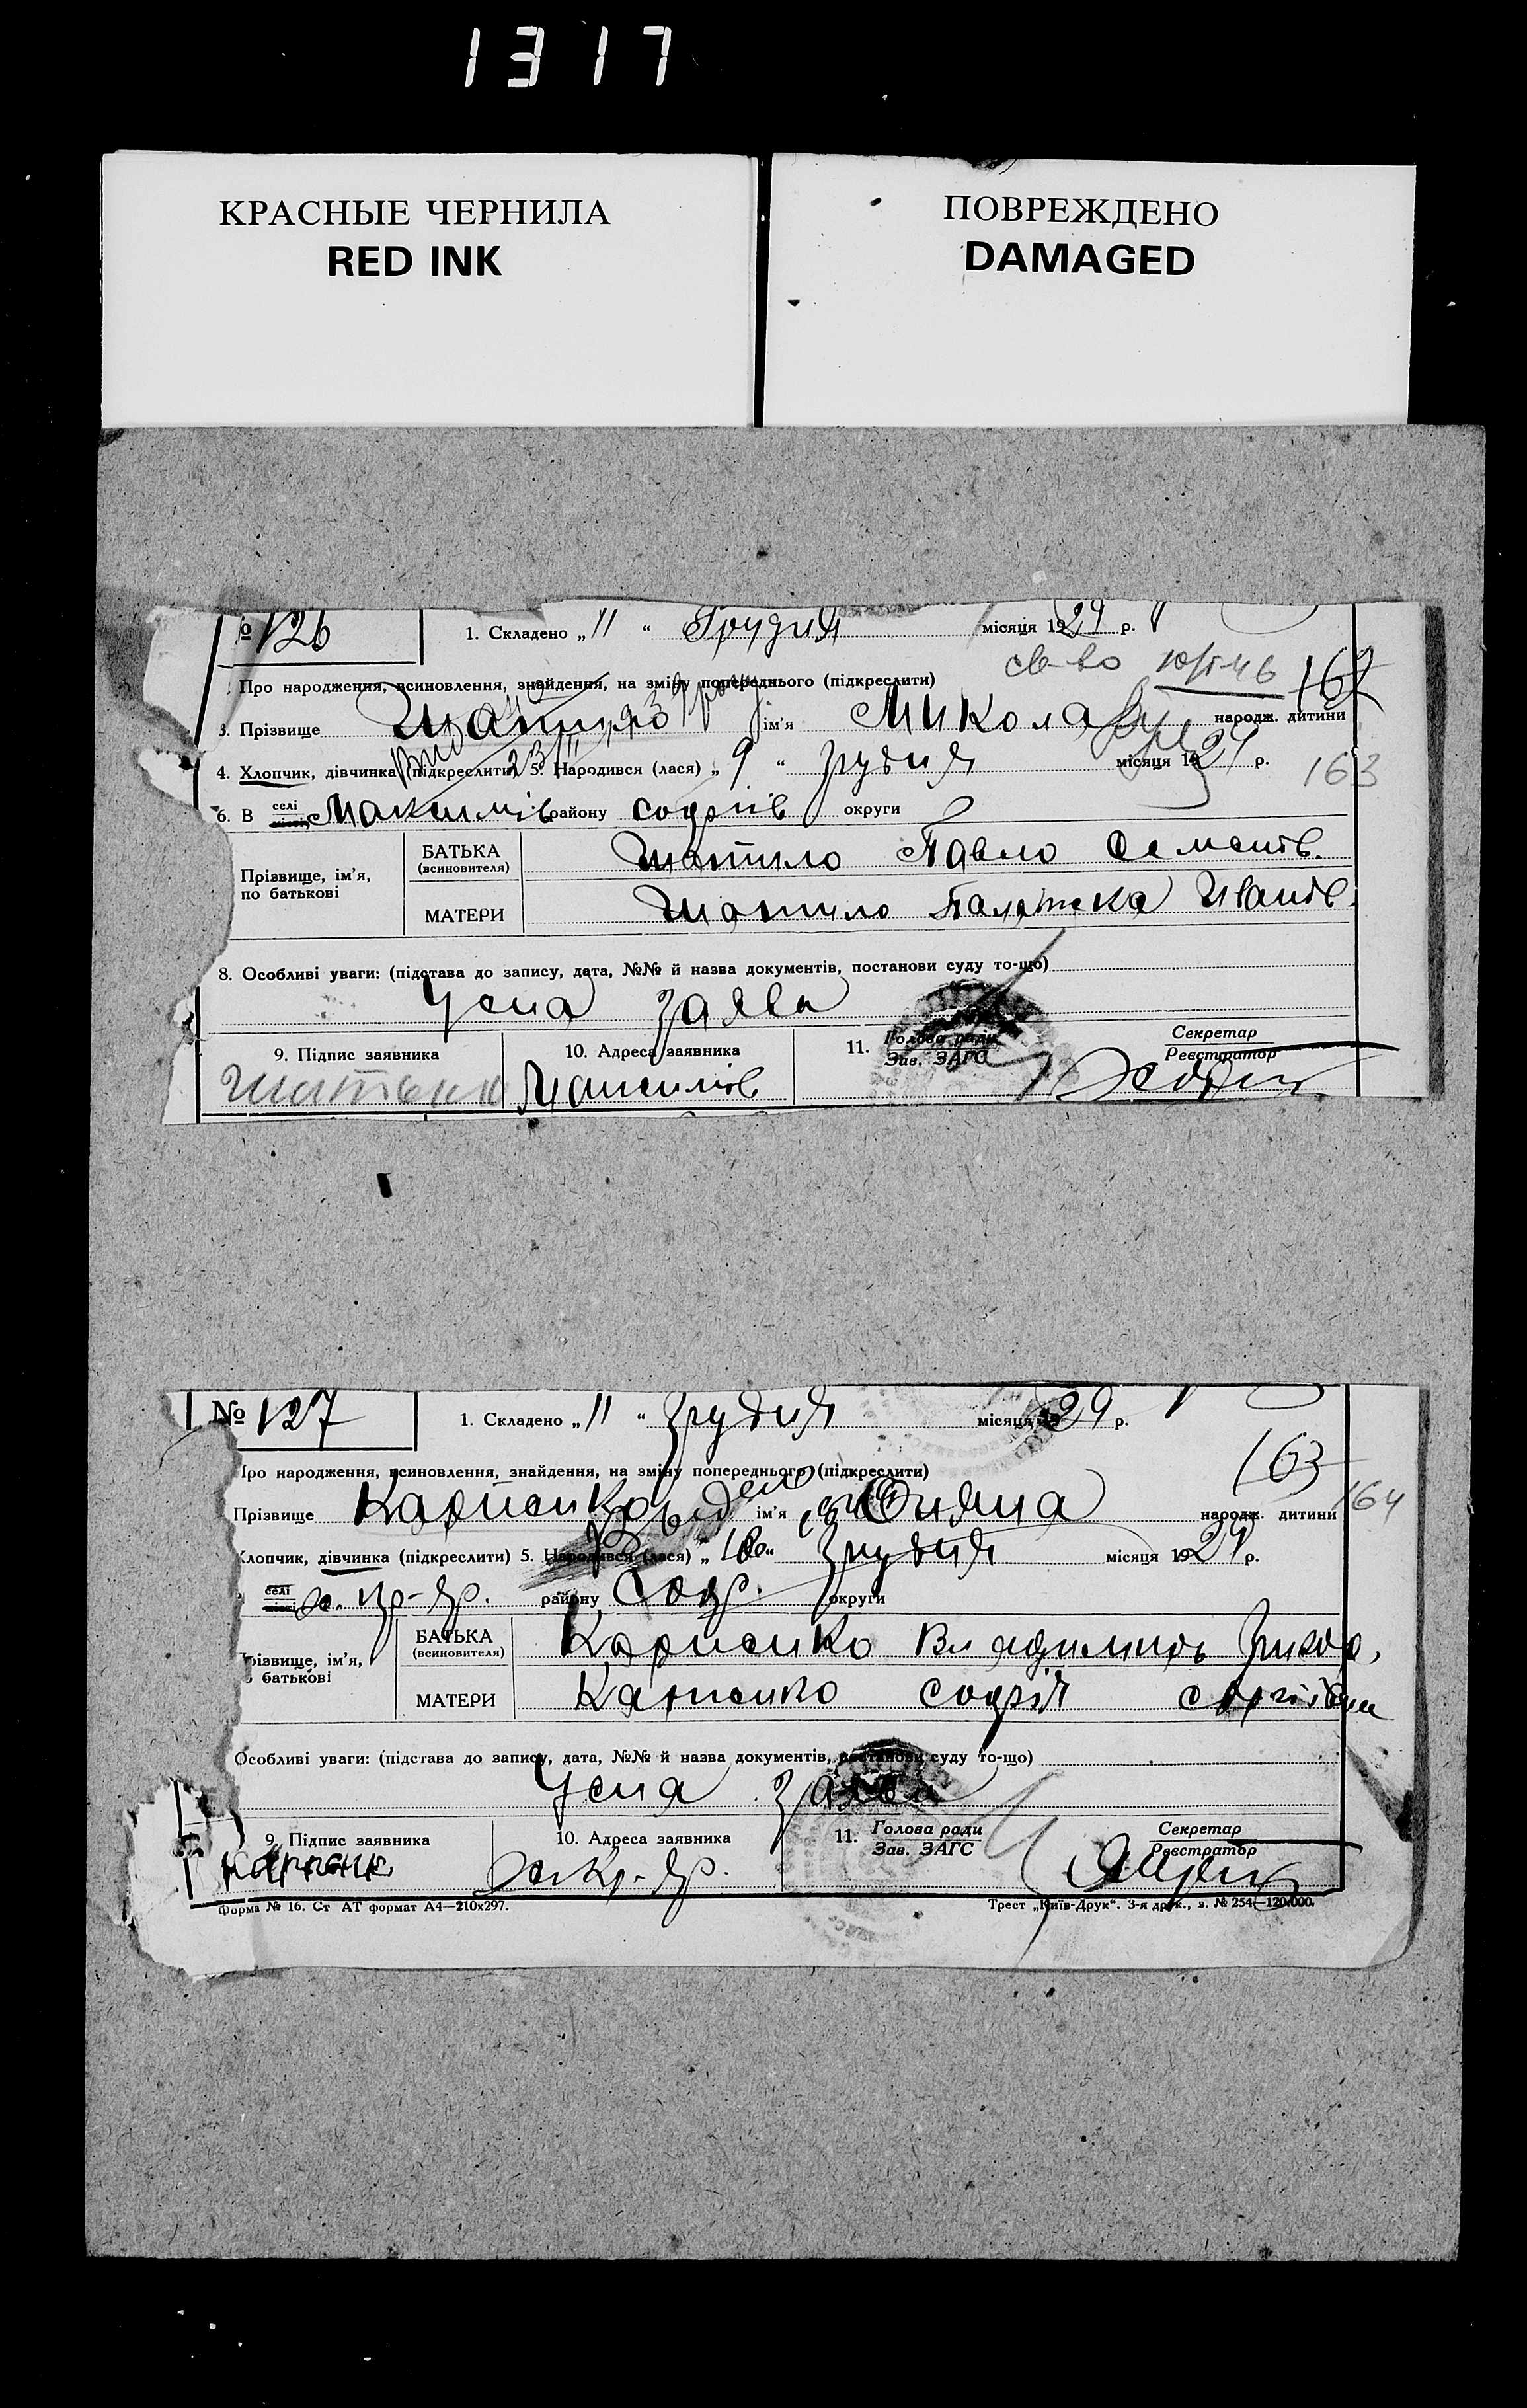 1317
КРАСНЫЕ ЧЕРНИЛА
RED INK
ПОВРЕЖДЕНО
DAMAGED
№ 126
1. Складено „11“ Грудня місяця 1929 р.
св-во
Про народження, всиновлення, знайдення, на зміну попереднього (підкреслити)
162
3. Прізвище Шатило ім'я Микола народж. дитини
4. Хлопчик, дівчинка (підкреслити) 5. Народився (лася) „9“ грудня місяця 1929 р.
163
6. В селі місті Максимів району Софіїв округи
Прізвище, ім'я, по батькові
БАТЬКА (всиновителя) Шатило Павло Семенів.
МАТЕРИ Шатило Палажка Иванів.
8. Особливі уваги: (підстава до запису, дата, №№ й назва документів, постанови суду то-що)
Усна заява
9. Підпис заявника 10. Адреса заявника 11. Голова ради Зав. ЗАГС Секретар Реєстратор
Максимів
№ 127
1. Складено „11“ грудня місяця 1929 р.
Про народження, всиновлення, знайдення, на зміну попереднього (підкреслити)
163
Прізвище Карпенко ім'я народж. дитини
164
Хлопчик, дівчинка (підкреслити) 5. Народився (лася) „10“ Грудня місяця 1929 р.
селі місті району Соф. округи
Прізвище, ім'я, по батькові
БАТЬКА (всиновителя) Карпенко Владимир
МАТЕРИ Карпенко Софія Сергіївна
Особливі уваги: (підстава до запису, дата, №№ й назва документів, постанови суду то-що)
Усна заява
9. Підпис заявника 10. Адреса заявника 11. Голова ради Зав. ЗАГС Секретар Реєстратор
Форма № 16. Ст АТ формат А4—210х297.
Трест „Київ-Друк“. 3-я друк., з. № 254—120.000.